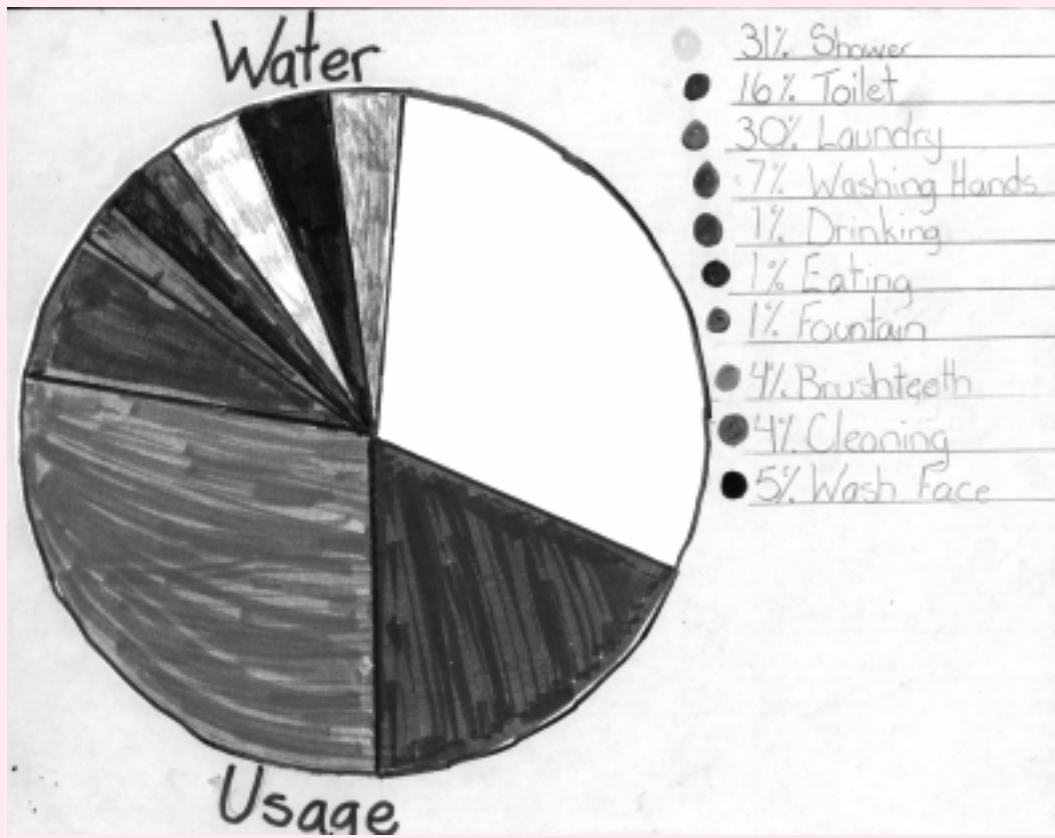 Water
31% Shower
16% Toilet
30% Laundry
7% Washing Hands
1% Drinking
1% Eating
1% Fountain
4% Brushteeth
4% Cleaning
5% Wash Face
Usage